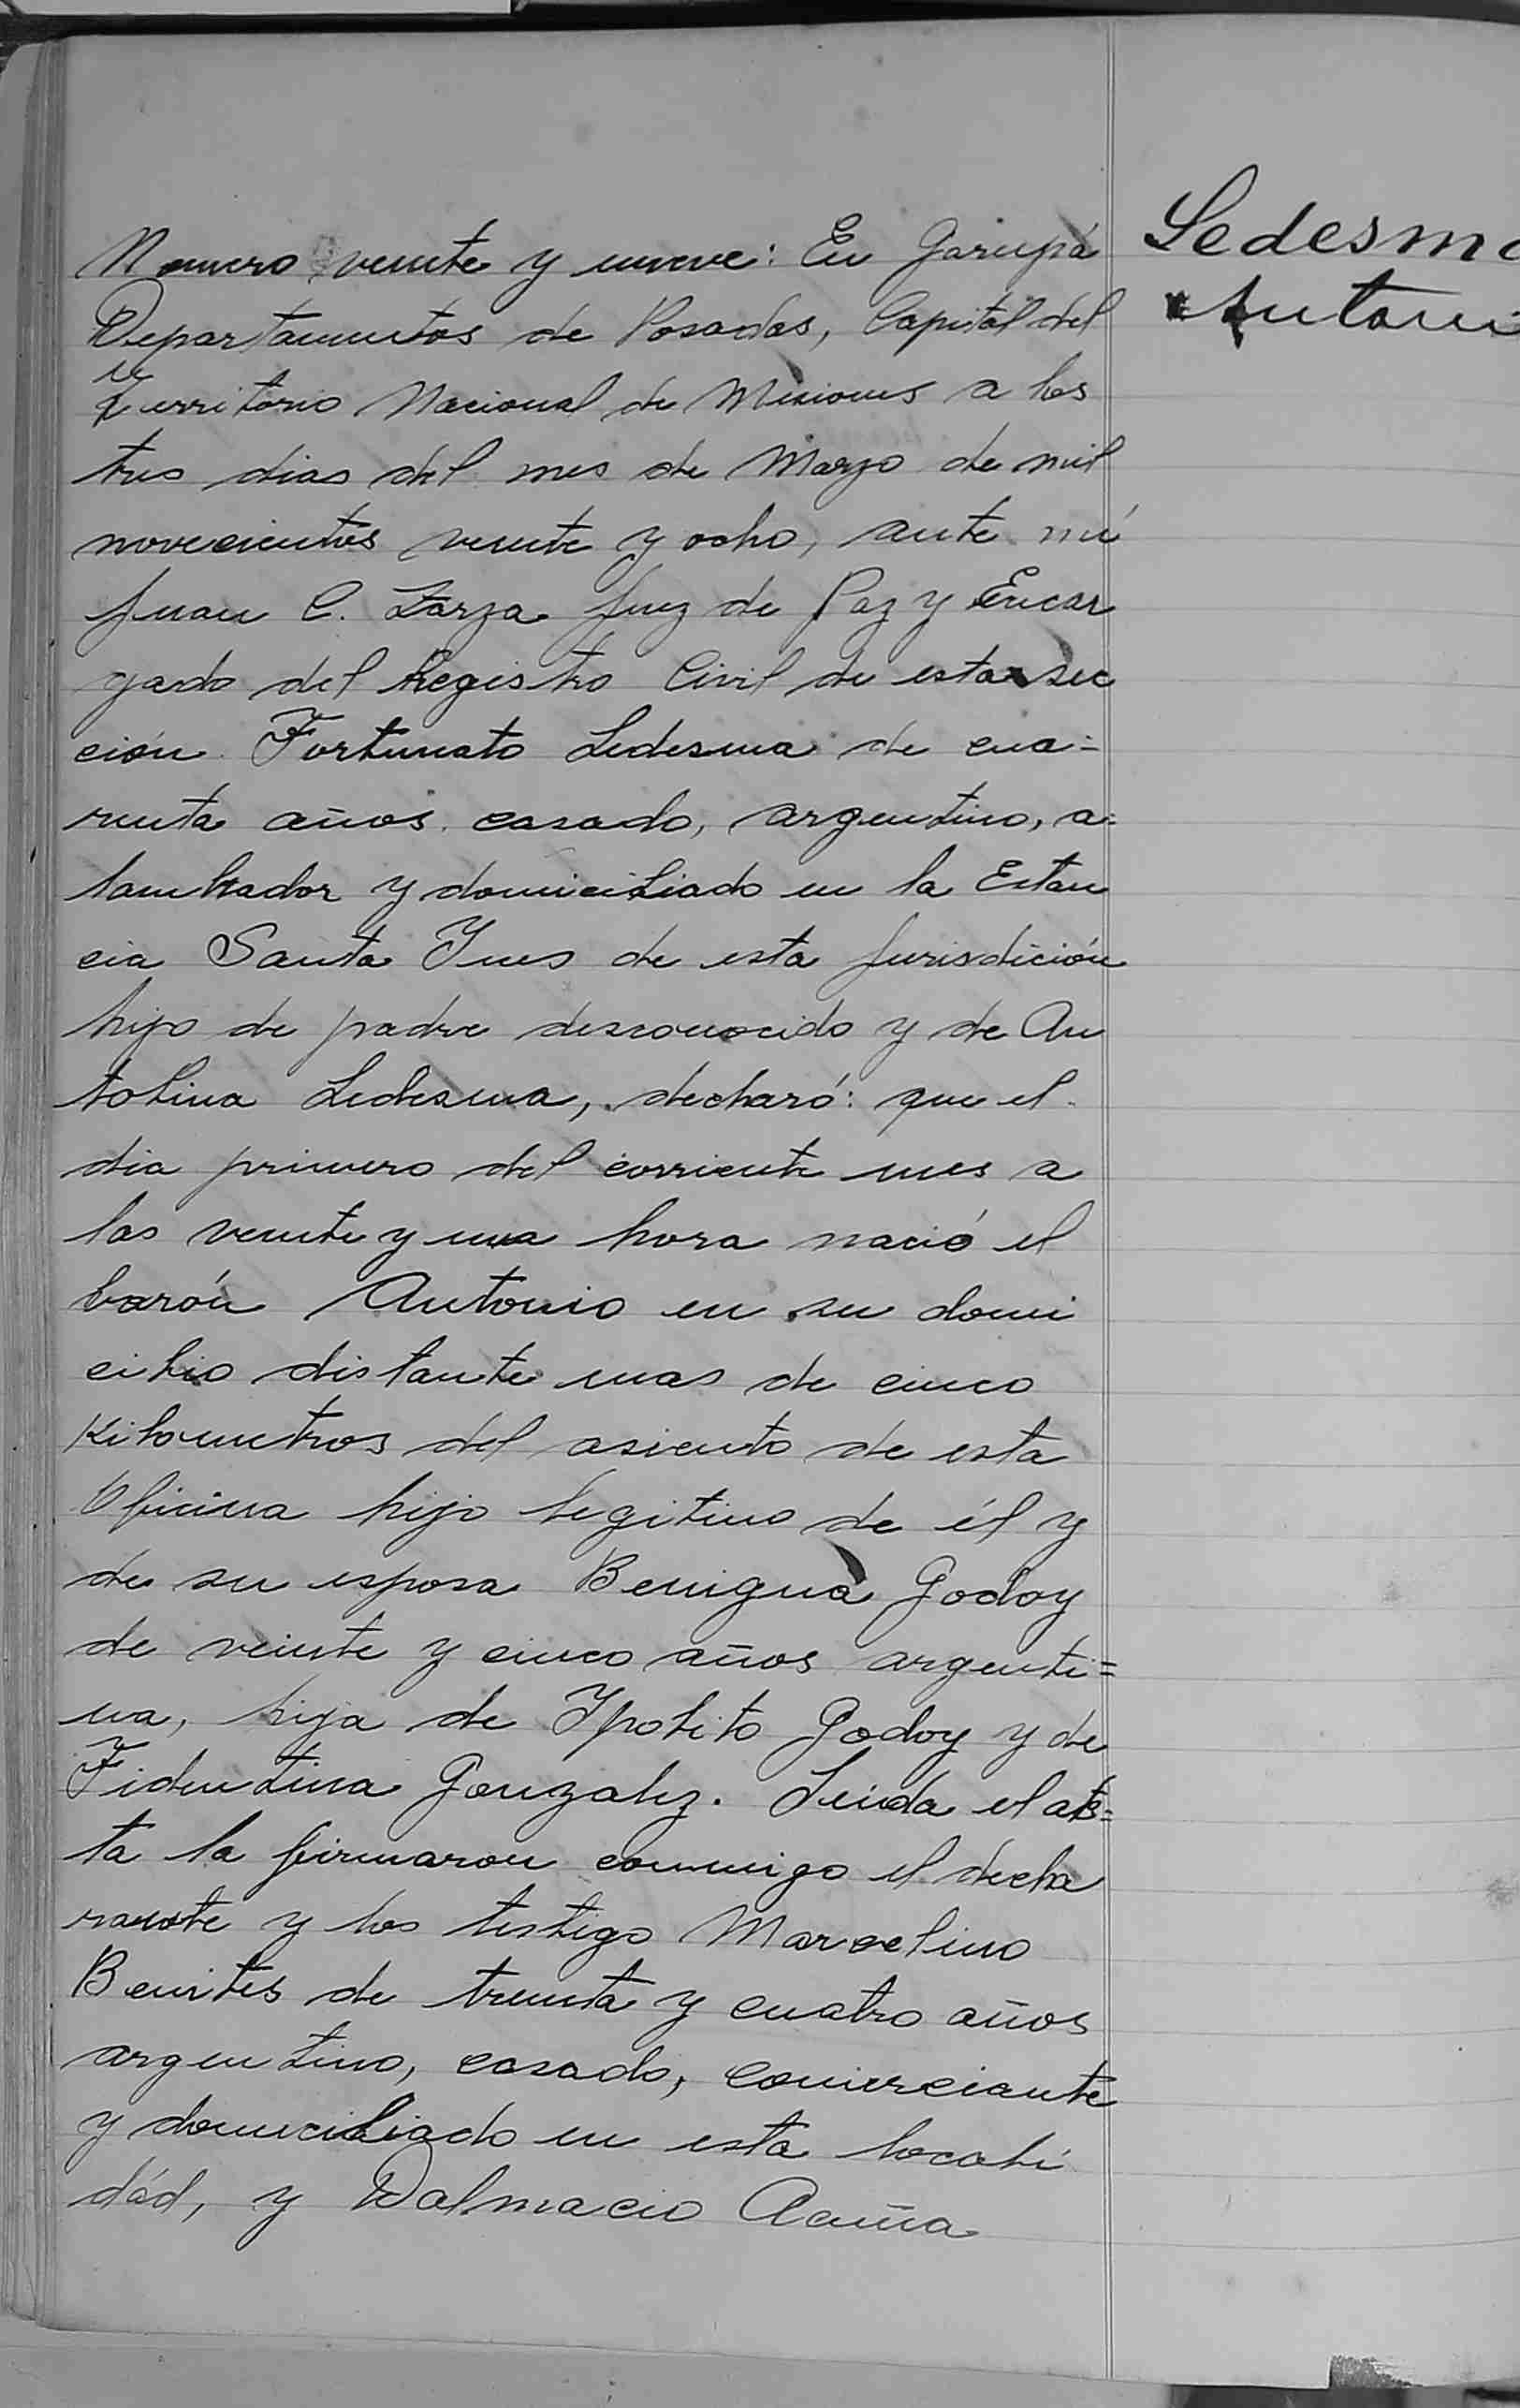 Numero veinte y nueve: En Garupá
Departamentos de Posadas, Capital del
Territorio Nacional de Misiones a los
tres dias del mes de Marzo de mil
novecientos veinte y ocho, ante mí
Juan C. Zarza Juez de Paz y Encar
gado del Registro Civil de esta sec
ción Fortunato Ledesma de cua=
renta años casado, argentino, a=
lambrador y domiciliado en la Estan
cia Santa Ynes de esta Jurisdición
hijo de padre desconocido y de An
tolina Ledesma, declaró: que el
dia primero del corriente mes a
las veinte y una hora nació el
barón Antonio en su domi
cilio distante mas de cinco
Kilometros del asiento de esta
Oficina hijo legitimo de él y
de su esposa Benigna Godoy
de veinte y cinco años argenti=
na, hija de Ypolito Godoy y de
Fidentina Gonzalez. Leida el
ta la firmaron conmigo el decla
rante y los testigo Marcelino
Benites de treinta y cuatro años
argentino, casado, comerciante
y domiciliado en esta locali
dád, y Dalmacio Acuña
Ledesma
Antoni